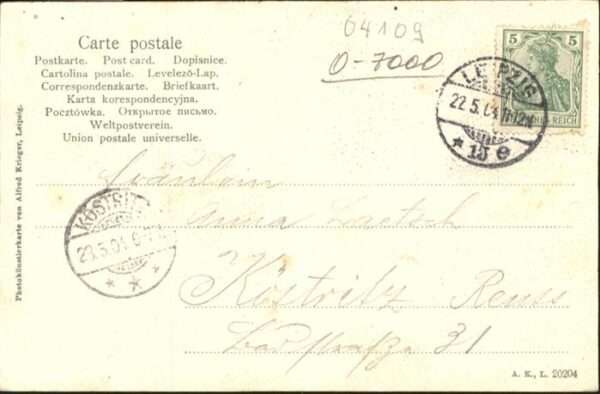 04109
0-7000
Carte postale
Postkarte. Post card. Dopisnice.
Cartolina postale. Levelező-Lap.
Correspondenzkarte. Briefkaart.
Karta korespondencyjna.
Pocztówka. Открытое письмо.
Weltpostverein.
Union postale universelle.
5 5
LEIPZIG
22.5.04
* 13 e
KÖSTRITZ
23.5.04
* * *
Fräulein
Anna Laetsch
Köstritz Reuss
Badstraße 31
Photokünstlerkarte von Alfred Krieger, Leipzig.
A. K., L. 20204